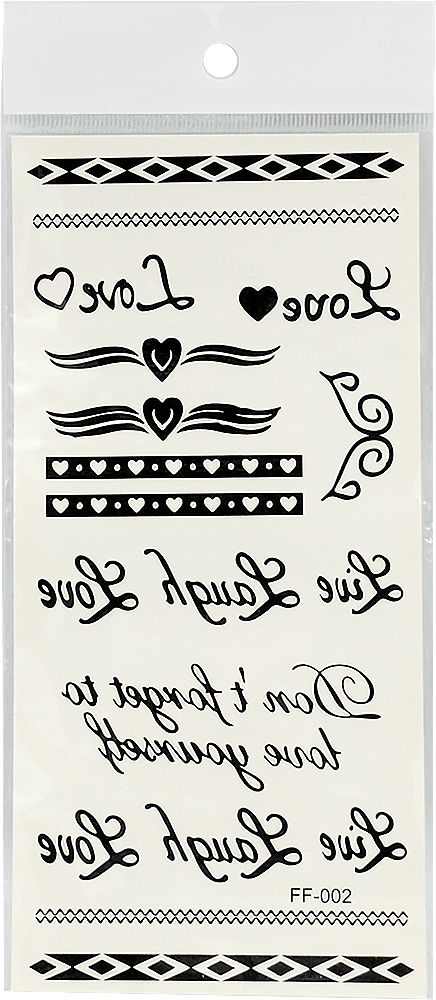 Love
Love
Live Laugh Love
Don't forget to
love yourself
Live Laugh Love
FF-002